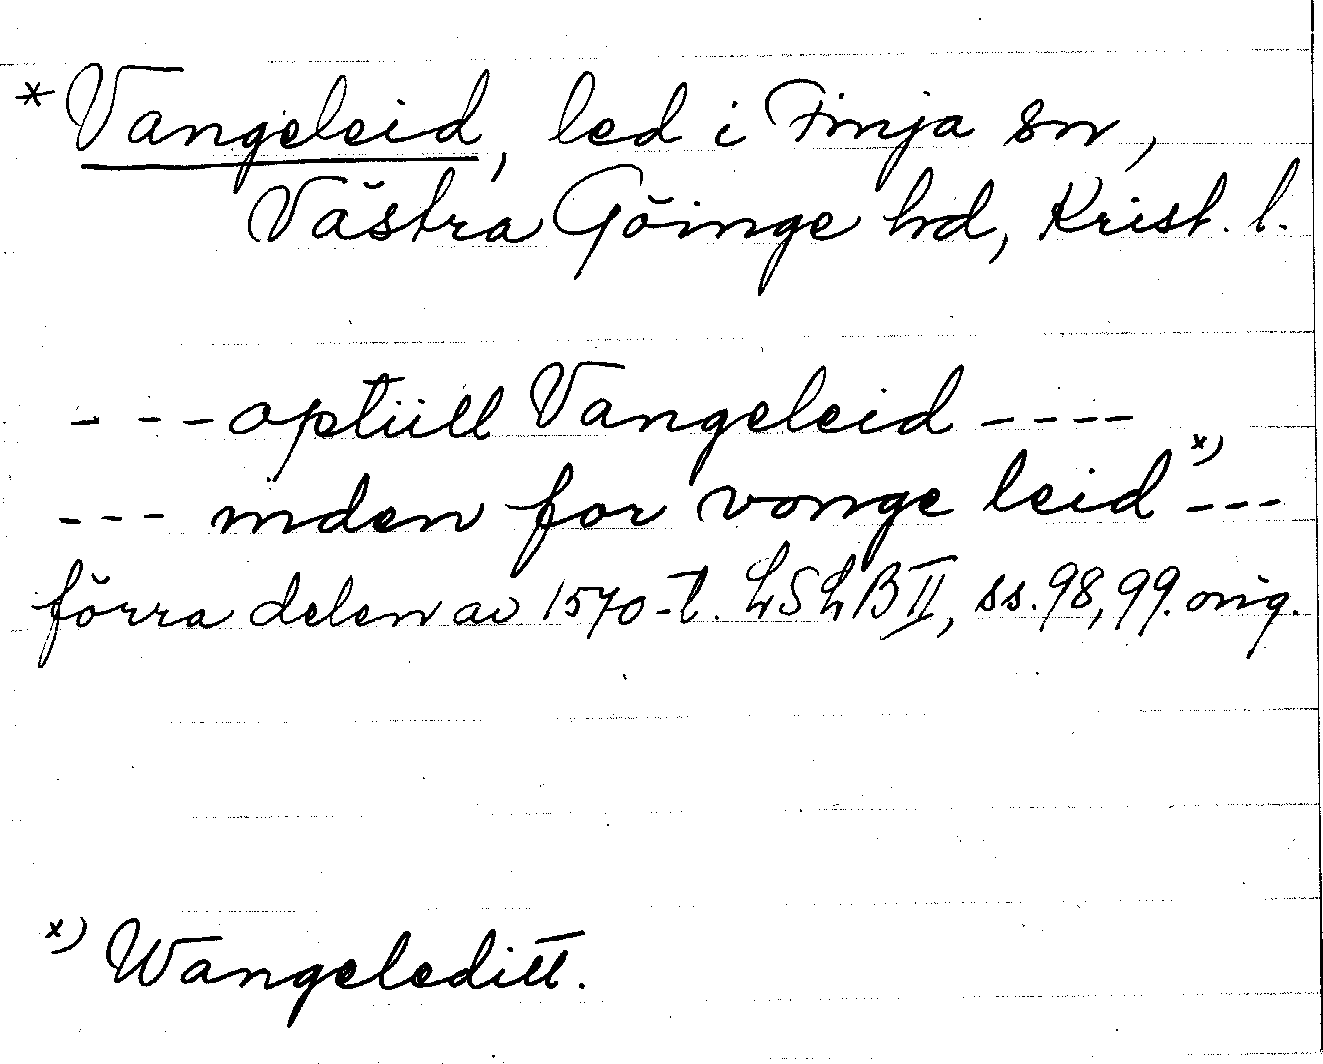 * Vangeleid, led i Finja sn,
Västra Göinge hd, Krist. l.
- - - optiill Vangeleid - - - -
- - - inden for vonge leid x) - - -
förra delen av 1570-t. LSLB II, ss. 98, 99. orig.
x) Wangeleditt.